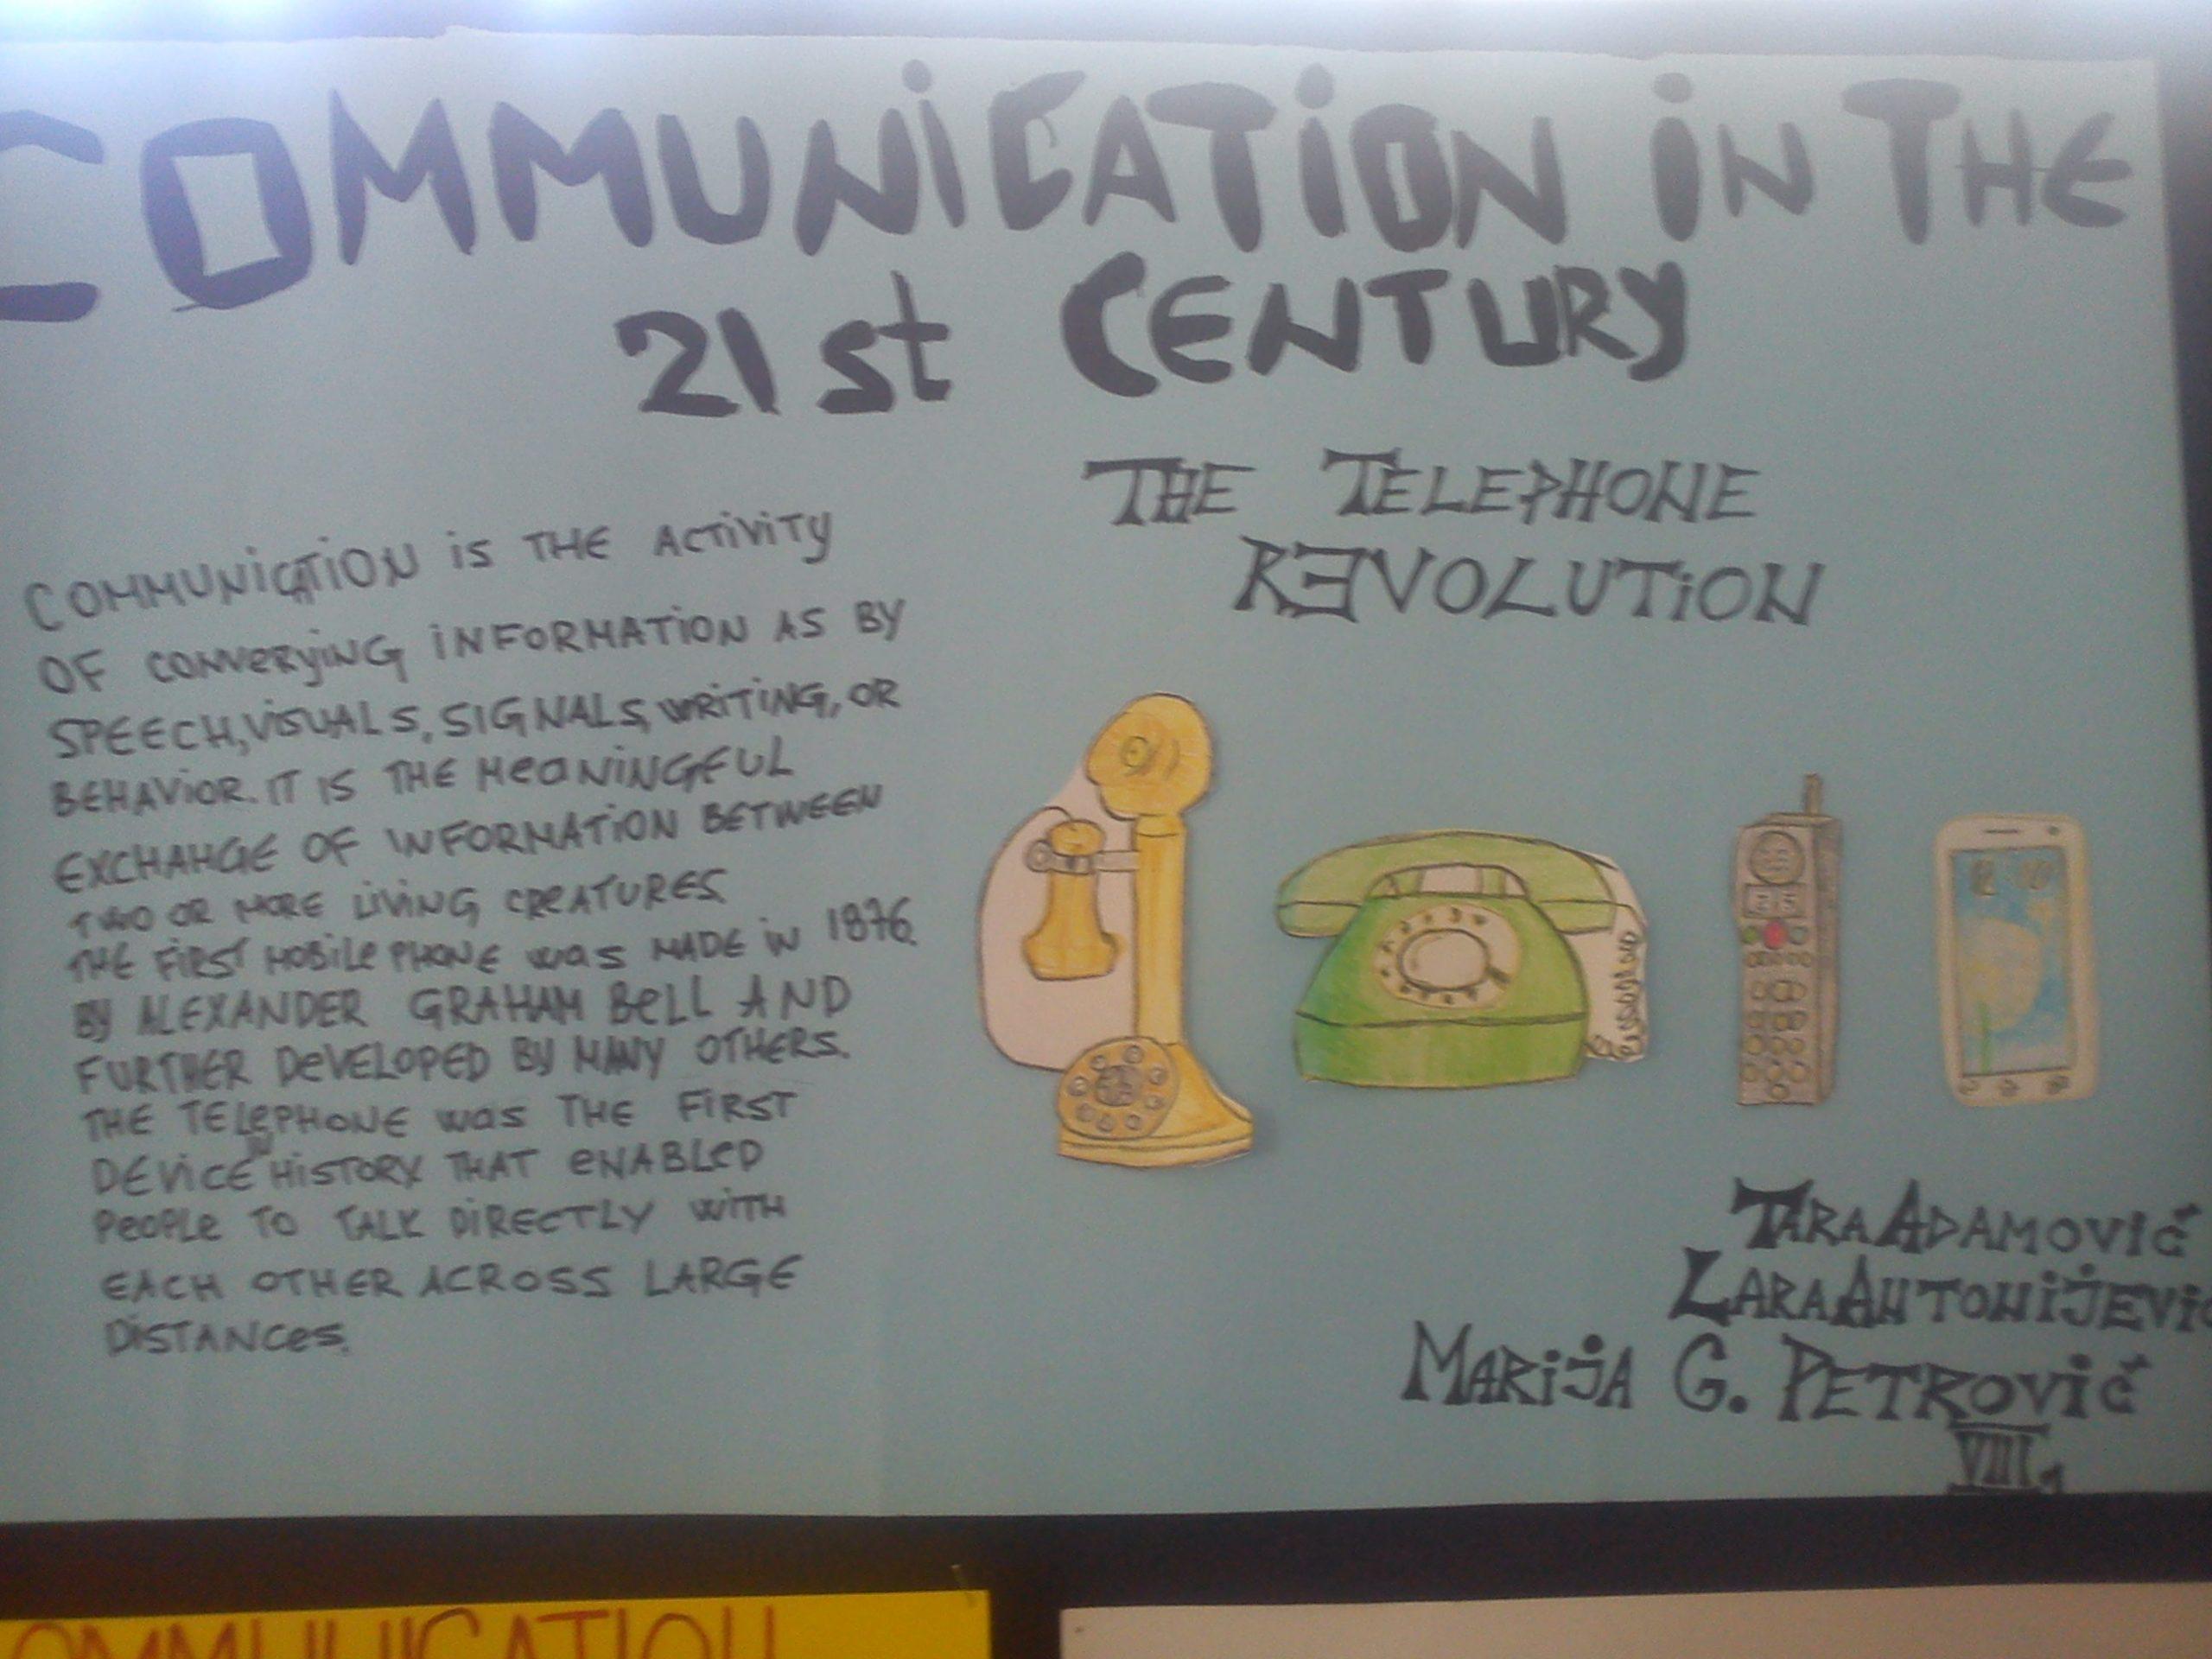 COMMUNICATION IN THE
21st CENTURY
THE TELEPHONE
REVOLUTION
COMMUNICATION IS THE ACTIVITY
OF CONVERYING INFORMATION AS BY
SPEECH, VISUALS, SIGNALS, WRITING, OR
BEHAVIOR. IT IS THE MEANINGFUL
EXCHANGE OF INFORMATION BETWEEN
TWO OR MORE LIVING CREATURES.
THE FIRST MOBILE PHONE WAS MADE IN 1876.
BY ALEXANDER GRAHAM BELL AND
FURTHER DEVELOPED BY MANY OTHERS.
THE TELEPHONE WAS THE FIRST
DEVICE IN HISTORY THAT ENABLED
PEOPLE TO TALK DIRECTLY WITH
EACH OTHER ACROSS LARGE
DISTANCES.
TARA ADAMOVIĆ
LARA ANTONIJEVIĆ
MARIJA G. PETROVIĆ
VIII1
COMMUNICATION